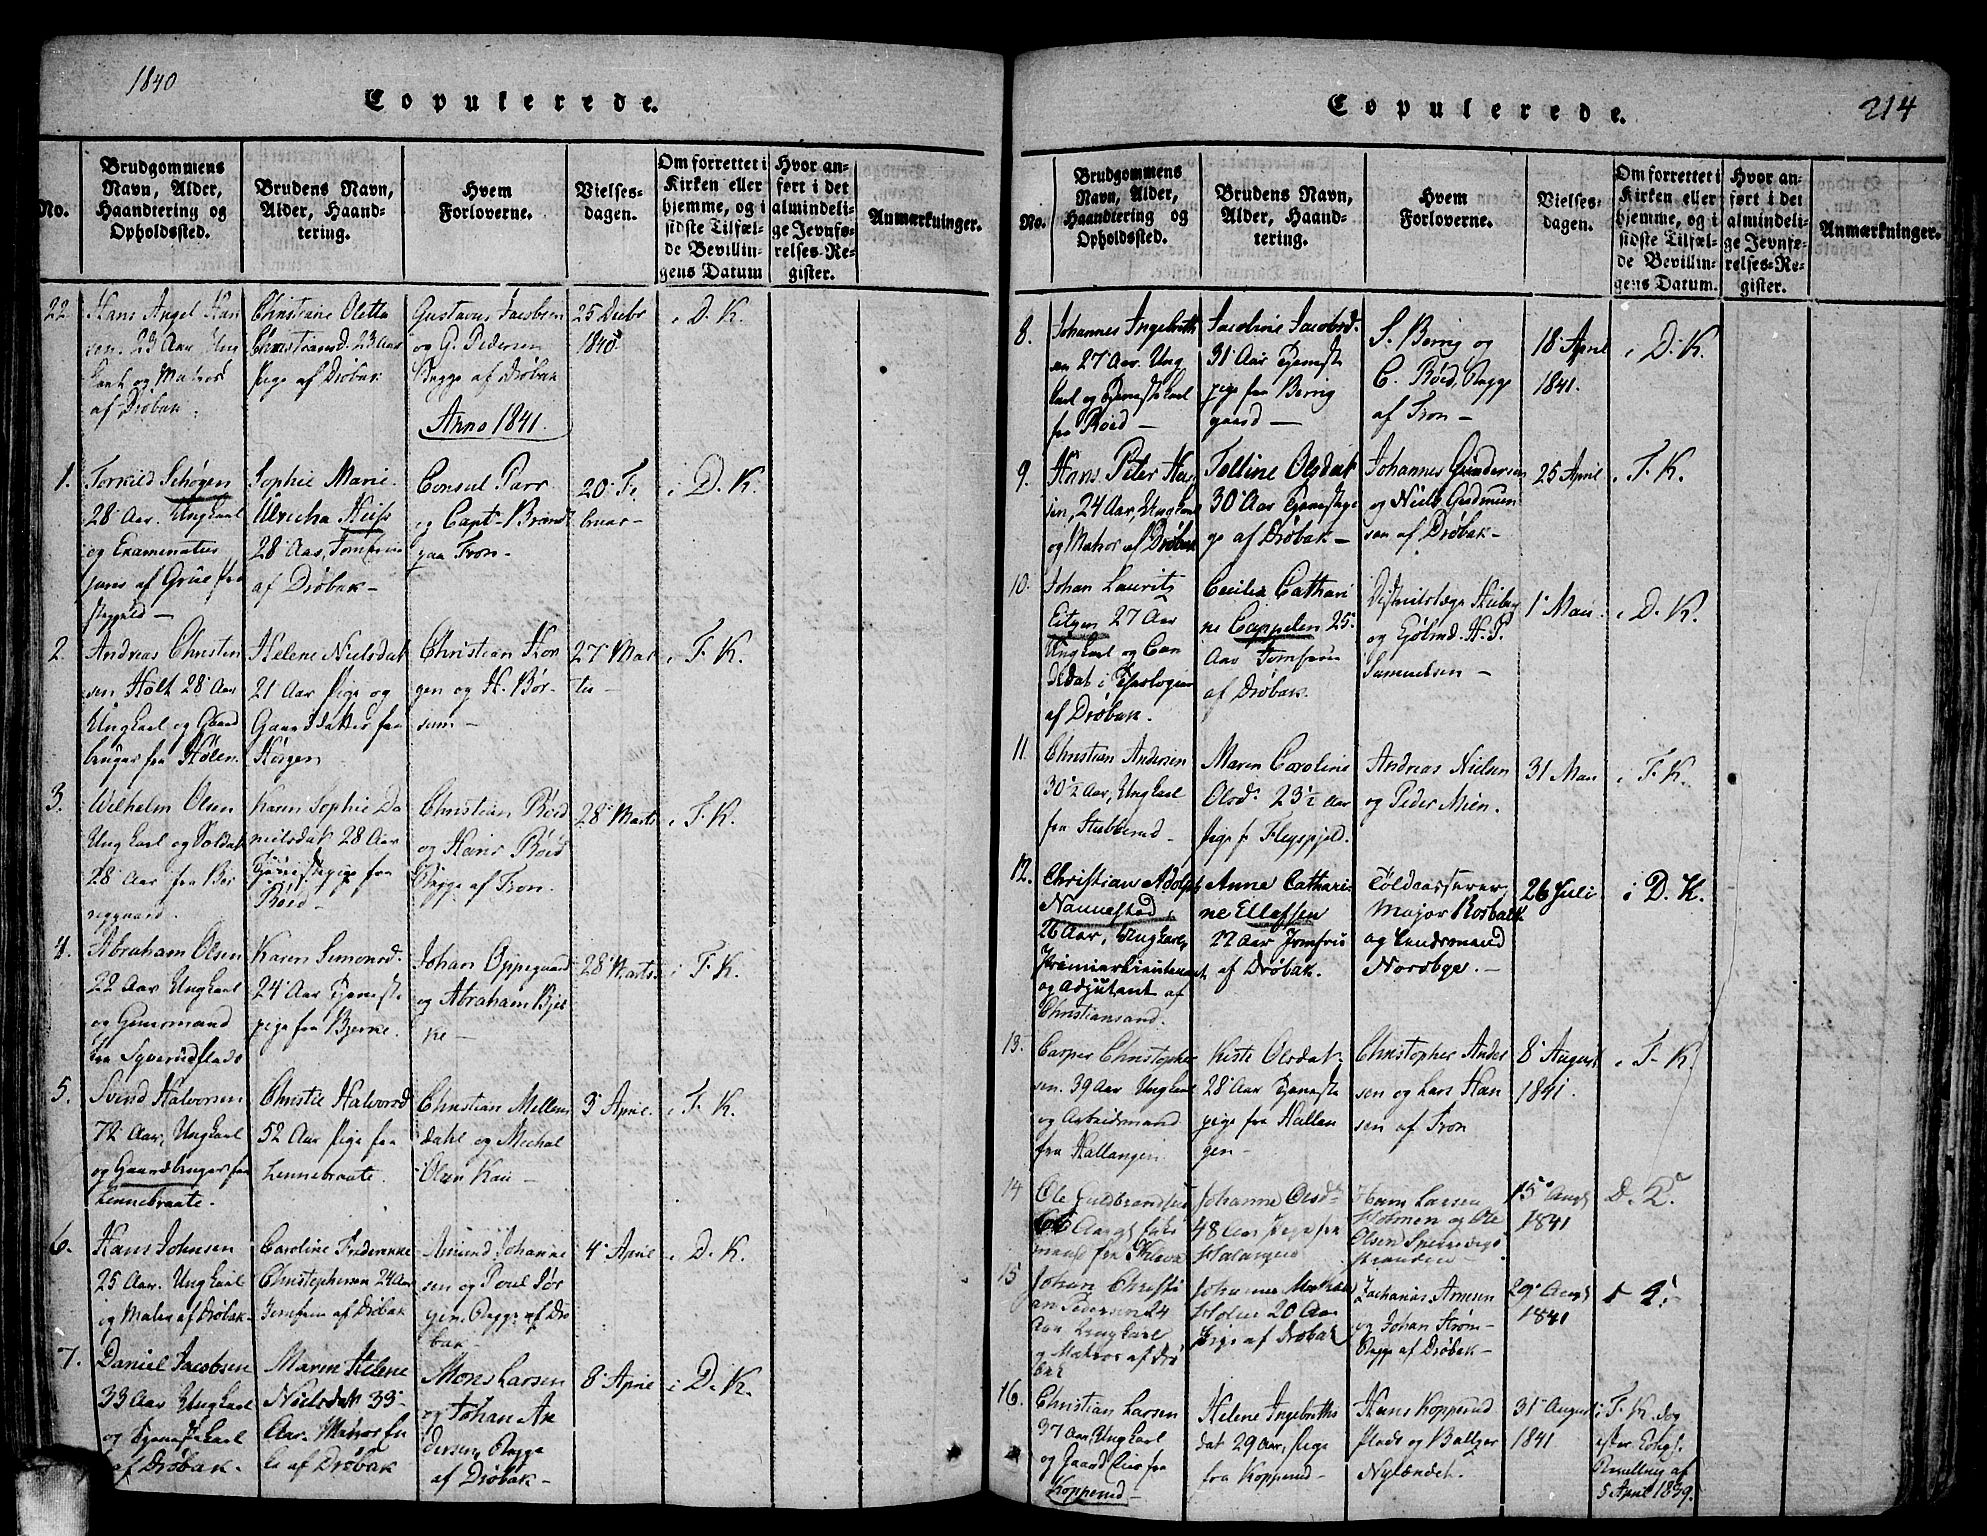 1840
Copulerede.
No.
Brudgommens
Navn, Alder,
Haandtering og
Opholdssted.
Brudens Navn,
Alder, Haand-
tering.
Hvem
Forloverne.
Vielses-
dagen.
Om forrettet i
Kirken eller
hjemme, og i
sidste Tilfæl-
de Bevillin-
gens Datum
Hvor an-
ført i det
almindeli-
ge Jevnfø-
relses-Re-
gister.
Anmærkninger.
22
Hans Angel Han
sen. 23 Aar Ung
karl og Matros
af Drøbak.
Christine Oletta
Christiansd. 23 Aar
Pige af Drøbak
Gustavus Jacobsen
og G. Pedersen
Begge af Drøbak
25 Decbr
1840
i D. K.
Anno 1841.
1.
Torkild Schøgen
28 Aar. Ungkarl
og Examinatus
juris af Grue
Sophie Marie
Ulricha
28 Aar, Jomfrue
af Drøbak-
Consul Parr
og Capt- Brandt
paa Fron-
20 Fe
bruar-
i D. K.
2.
Andreas Christen
sen Holt 28 Aar
Ungkarl og Gaard
bruger fra Hølen
Helene Nielsdat
21 Aar Pige og
Gaard datter fra
Horgen
Christian Hor
gen og H. Bor-
sum-
27 Mar
ts-
i F. K.
3.
Wilhelm Olsen
Ungkarl og Soldat
28 Aar fra Ber
reggaard.
Karen Sophie Da
nielsdat 28 Aar
Tjenestepige fra
Røed-
Christian Røed
og Hans Røed
Begge af Fron
28 Marts
i F. K.
4.
Abraham Olsen
22 Aar Ungkarl
og
fra
Karen Simonsd.
24 Aar Tjeneste
pige fra Bjerke.
Johan Oppegaard
og Abraham Bjer
ke-
28 Marts
i F. K.
5.
Svend Halvorsen
72 Aar, Ungkarl
og Gaardbruger fra
Lennebraate.
Christie Halvorsd
52 Aar Pige fra
Lennebraate.
Christian Mellem
dahl og Michal
Olsen
3 April.
i F. K.
6.
Hans Johnsen
25 Aar. Ungkarl
og Maler af Drøbak-
Caroline Friderikke
Christophersen 24 Aar
Jomfrue af Drøbak
Amund Johanne
sen og Poul Jør
gen, Begge af Drø
bak-
4 April
i D. K.
7.
Daniel Jacobsen
33 Aar Ungkarl
og Tjenestekarl
af Drøbak-
Maren Helene
Nielsdat 33
Aar. Matros En
ke af Drøbak
Mons Larsen
og Johan An
dersen, Begge
af Drøbak-
8 April
i D. K.
Copulerede.
214
No.
Brudgommens
Navn, Alder,
Haandtering og
Opholdssted.
Brudens Navn,
Alder, Haand-
tering.
Hvem
Forloverne.
Vielses-
dagen.
Om forrettet i
Kirken eller
hjemme, og i
sidste Tilfæl-
de Bevillin-
gens Datum.
Hvor an-
ført i det
almindeli-
ge Jevnfø-
relses-Re-
gister.
Anmærkninger.
8.
Johannes Ingebreth
sen 27 Aar. Ung
karl og Tjenestekarl
fra Røed-
Jacobine Jacobsd.
31 Aar Tjeneste
pige fra Berrig
gaard-
S. Berrig og
C. Røed, Begge
af Fron-
18 April
1841.
i D. K.
9.
Hans Peter Han
sen, 24 Aar, Ungkarl
og Matros af Drøbak
Olsdat
30 Aar Tjenestepi
ge af Drøbak-
Johannes Gundersen
og Niels Gudmun
sen af Drøbak-
25 April
i F. K.
10.
Johan Lauritz
27 Aar
Ungkarl og Can
didat i Theologien
af Drøbak.
Cecilia Cathari
ne Cappelen 25
Aar Jomfrue
af Drøbak.
Districtslæge
og H. P.
Samuelsen-
1 Mai
i D. K.
11.
Christian Andersen
30½ Aar, Ungkarl
fra Stubberud-
Maren Caroline
Olsd. 23½ Aar
Pige fr
Andreas Nielsen
og Peder Mien.
31 Mai
i F. K.
12.
Christian Adolph
Nannestad
26 Aar, Ungkarl,
Premierlieutenant
og Adjutant af
Christiansand.
Anne Cathari-
ne Ellefsen
22 Aar Jomfru
af Drøbak.
Toldcasserer,
Major
og Lensmand
Nordbye.-
26 Juli
i D. K.
13.
Casper Christopher
sen. 39 Aar Ungkarl
og Arbeidsmand
fra Hallangen.
Kirsti Olsdat
28 Aar Tjeneste
pige fra Hallan
gen-
Christopher Ander
sen og Lars Han
sen af Fron
8 August
1841.
i F. K.
14
Ole Guldbrandsen
fra
Johanne Olsd
48 Aar Pige fra
Halangen
Larsen
Holmen og Ole
Olsen
15 Augt
1841
D. K.
15
Johan Christi
an Pedersen 24
Aar Ungkarl
og Matros af Drø
bak
20 Aar
Pige af Drøbak
Zacharias Arnesen
og Johan Strøm-
Begge af Drøbak-
29 Augt
1841
16.
Christian Larsen
37 Aar, Ungkarl
og fra
Kopperud-
Helene Ingebreths
dat 29 Aar, Pige
fra Kopperud-
Hans Kopperud
og Baltzer
Nylændet.
31 August
1841
i F. K. dog
efter Kongl.
Bevilling af
5 April 1839.